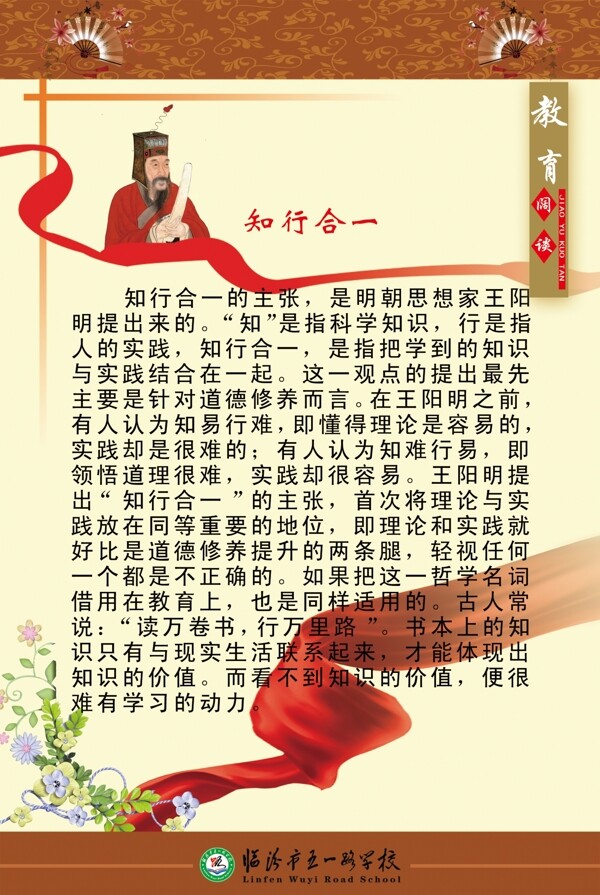 教育
阔谈
JIAO YU KUO TAN
知行合一
知行合一的主张，是明朝思想家王阳
明提出来的。“知”是指科学知识，行是指
人的实践，知行合一，是指把学到的知识
与实践结合在一起。这一观点的提出最先
主要是针对道德修养而言。在王阳明之前，
有人认为知易行难，即懂得理论是容易的，
实践却是很难的；有人认为知难行易，即
领悟道理很难，实践却很容易。王阳明提
出“知行合一”的主张，首次将理论与实
践放在同等重要的地位，即理论和实践就
好比是道德修养提升的两条腿，轻视任何
一个都是不正确的。如果把这一哲学名词
借用在教育上，也是同样适用的。古人常
说：“读万卷书，行万里路”。书本上的知
识只有与现实生活联系起来，才能体现出
知识的价值。而看不到知识的价值，便很
难有学习的动力。
临汾市五一路学校
Linfen Wuyi Road School